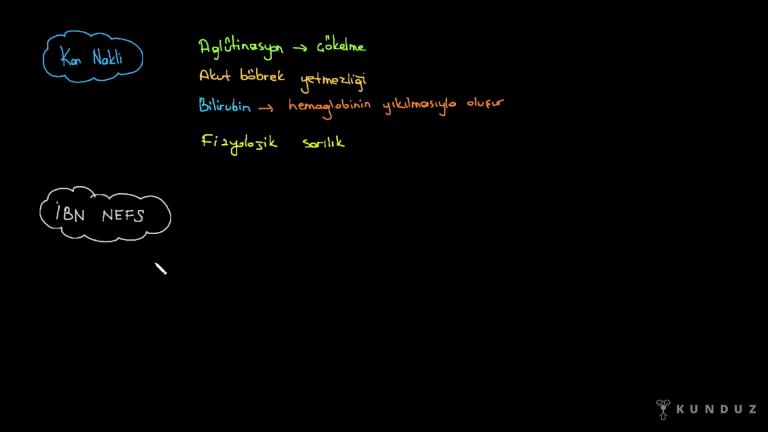 Kan Nakli
Aglütinasyon → çökelme
Akut böbrek yetmezliği
Bilirubin → hemaglobinin yıkılmasıyla oluşur
Fizyolojik sarılık
İBN NEFS
KUNDUZ